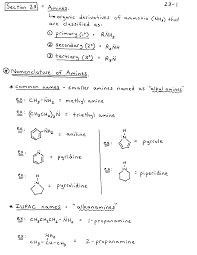 23-1
Section 23 Amines
- organic derivatives of ammonia (NH₃) that
are classified as:
① primary (1°) = RNH₂
② secondary (2°) = R₂NH
③ tertiary (3°) = R₃N
Nomenclature of Amines
common names - smaller amines named as "alkyl amines"
ex: CH₃-NH₂ = methyl amine
ex: (CH₃CH₂)₃N = triethyl amine
ex: NH₂ = aniline
ex: = pyrrole
ex: = pyridine
ex: = piperidine
ex: = pyrrolidine
IUPAC names - "alkanamines"
ex: CH₃CH₂CH₂-NH₂ = 1-propanamine
ex: NH₂
CH₃-CH-CH₃ = 2-propanamine